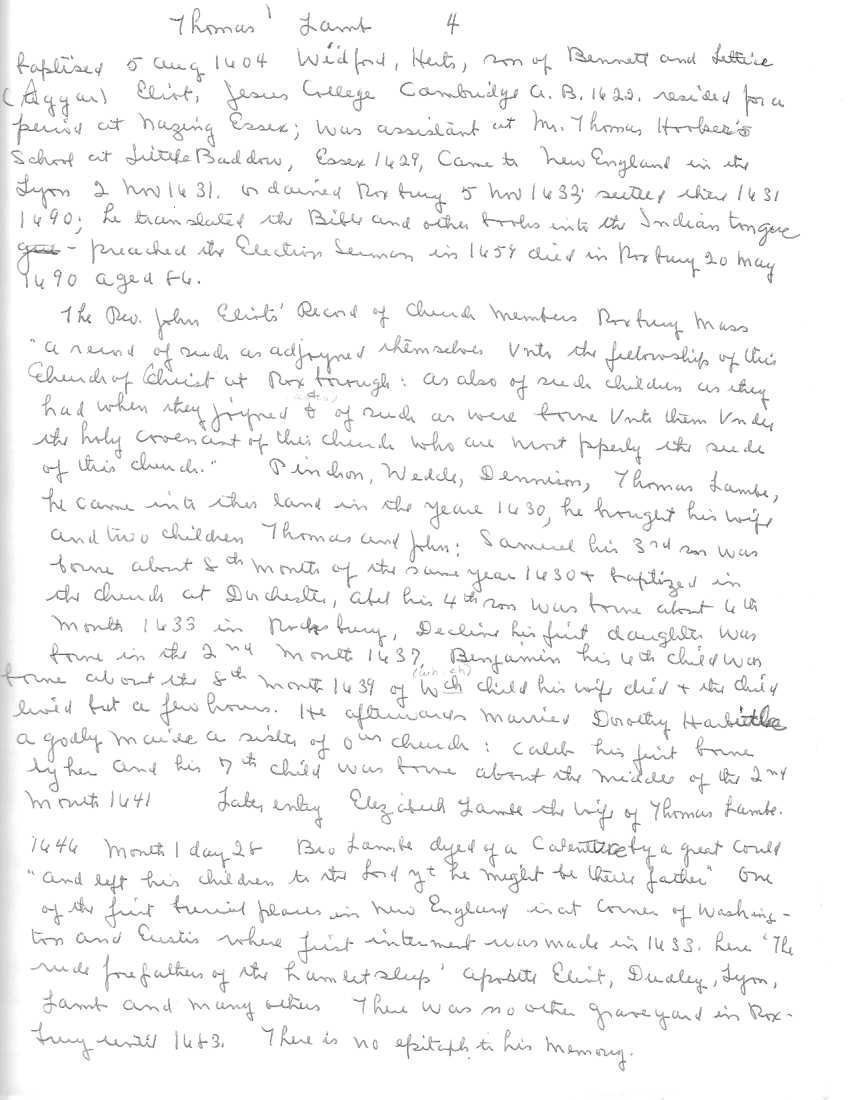 Thomas' Lamb 4
baptised 5 Aug 1604 Widford, Herts, son of Bennett and Lettice
(Aggar) Eliot, Jesus College Cambridge A.B. 1622. resided for a
period at Nazing Essex; was assistant at Mr. Thomas Hooker's
School at Little Baddow, Essex 1629, Came to New England in the
Lyon 2 Nov 1631. ordained Roxbury 5 Nov 1633; settled there 1631
1690; he translated the Bible and other books into the Indian tongue
gue - preached the Election Sermon in 1659 died in Roxbury 20 May
1690 aged 86.
The Rev. John Eliots' Record of Church Members Roxbury Mass
"a record of such as adjoyned themselves Unto the fellowship of this
Church of Christ at Roxborough: as also of such children as they
had when they joyned & of such as were borne Unto them Under
the holy covenant of this church who are most pperly the seede
of this church." Pinchon, Welde, Dennison, Thomas Lambe,
he came into this land in the yeare 1630, he brought his wife
and two children Thomas and John; Samuel his 3rd son was
borne about 8th month of the same year 1630 + baptized in
the church at Dorchester, Abel his 4th son was borne about 6th
Month 1633 in Rocksbury, Decline his first daughter was
borne in the 2nd Month 1637, Benjamin his 6th child was
borne about the 8th month 1639 of Wch child his wife died + the child
lived but a few hours. He afterwards married Dorothy Harbittle
a godly maide a sister of our church: Caleb his first borne
by her and his 7th child was borne about the middle of the 2nd
Month 1641 Later entry Elizabeth Lambe the wife of Thomas Lambe.
1646 Month 1 day 28 Bro Lambe dyed of a Calenture by a great Could
"and left his children to the Lord yt he might be their father" One
of the first burial places in New England is at corner of Washing-
ton and Eustis where first interment was made in 1633. here 'The
rude forefathers of the hamlet sleep' Apostle Eliot, Dudley, Lyon,
Lamb and many others There was no other graveyard in Rox-
bury until 1683. There is no epitaph to his memory.